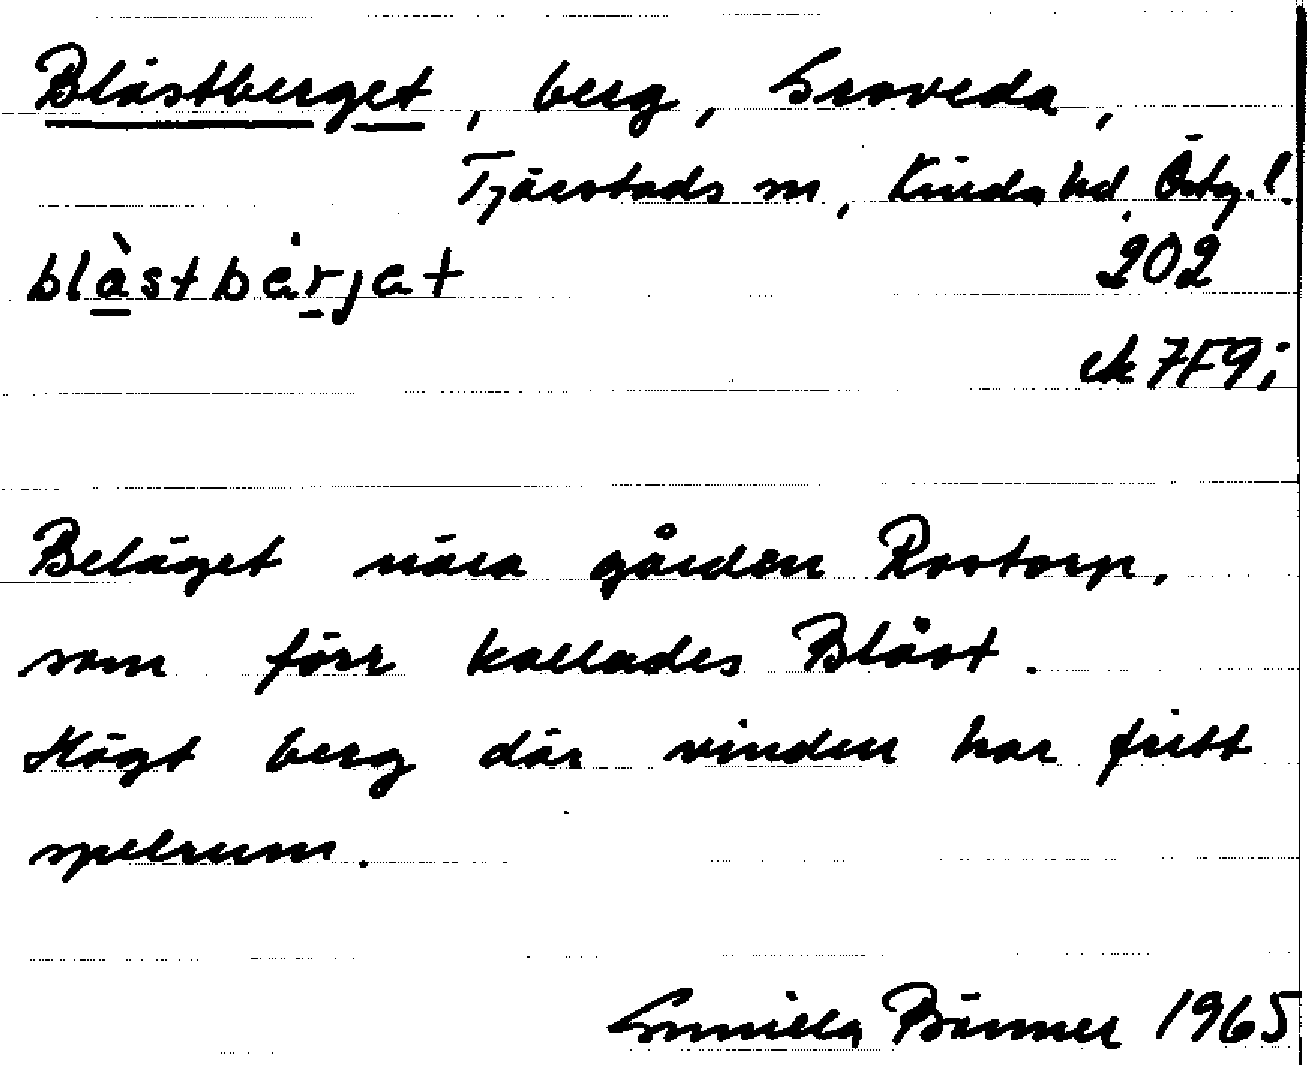 Blåstberget, berg, Groveda,
Tjärstads sn, Kinda hd, Östg.l.
blàstbärjat 202
ek 7F9i
Beläget nära gården Rostorp,
som förr kallades Blåst.
Högt berg där vinden har fritt
spelrum.
Gunilla Bänner 1965